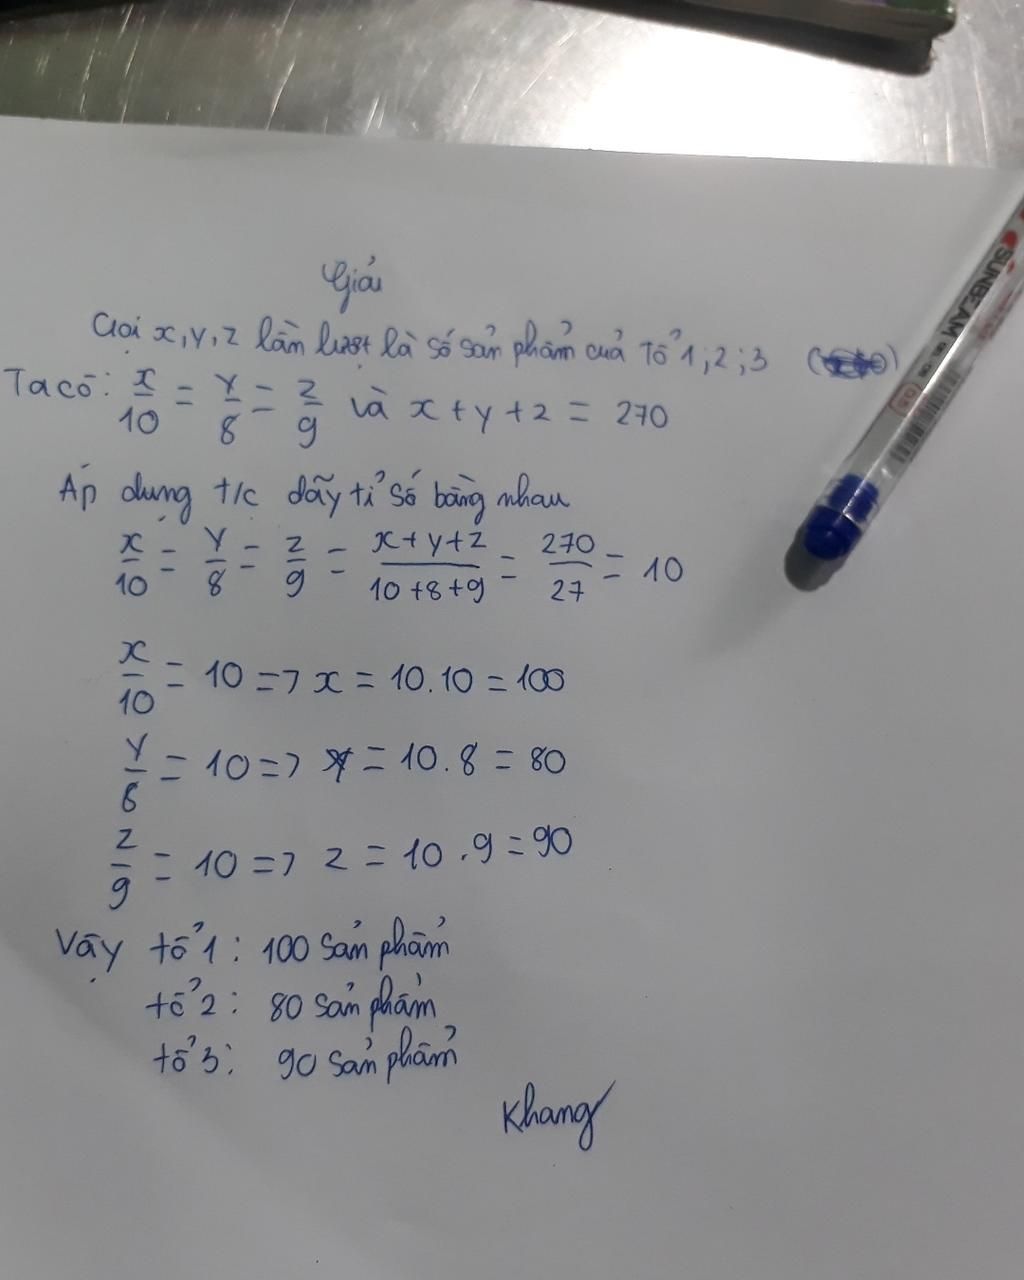 Giải
Gọi x, y, z lần lượt là số sản phẩm của Tổ 1; 2; 3
Ta có: x/10 = y/8 = z/9 và x + y + z = 270
Áp dụng t/c dãy tỉ số bằng nhau
x/10 = y/8 = z/9 = x+y+z/10+8+9 = 270/27 = 10
x/10 = 10 => x = 10.10 = 100
y/8 = 10 => y = 10.8 = 80
z/9 = 10 => z = 10.9 = 90
Vậy tổ 1: 100 sản phẩm
tổ 2: 80 sản phẩm
tổ 3: 90 sản phẩm
Khang
SUNBEAM